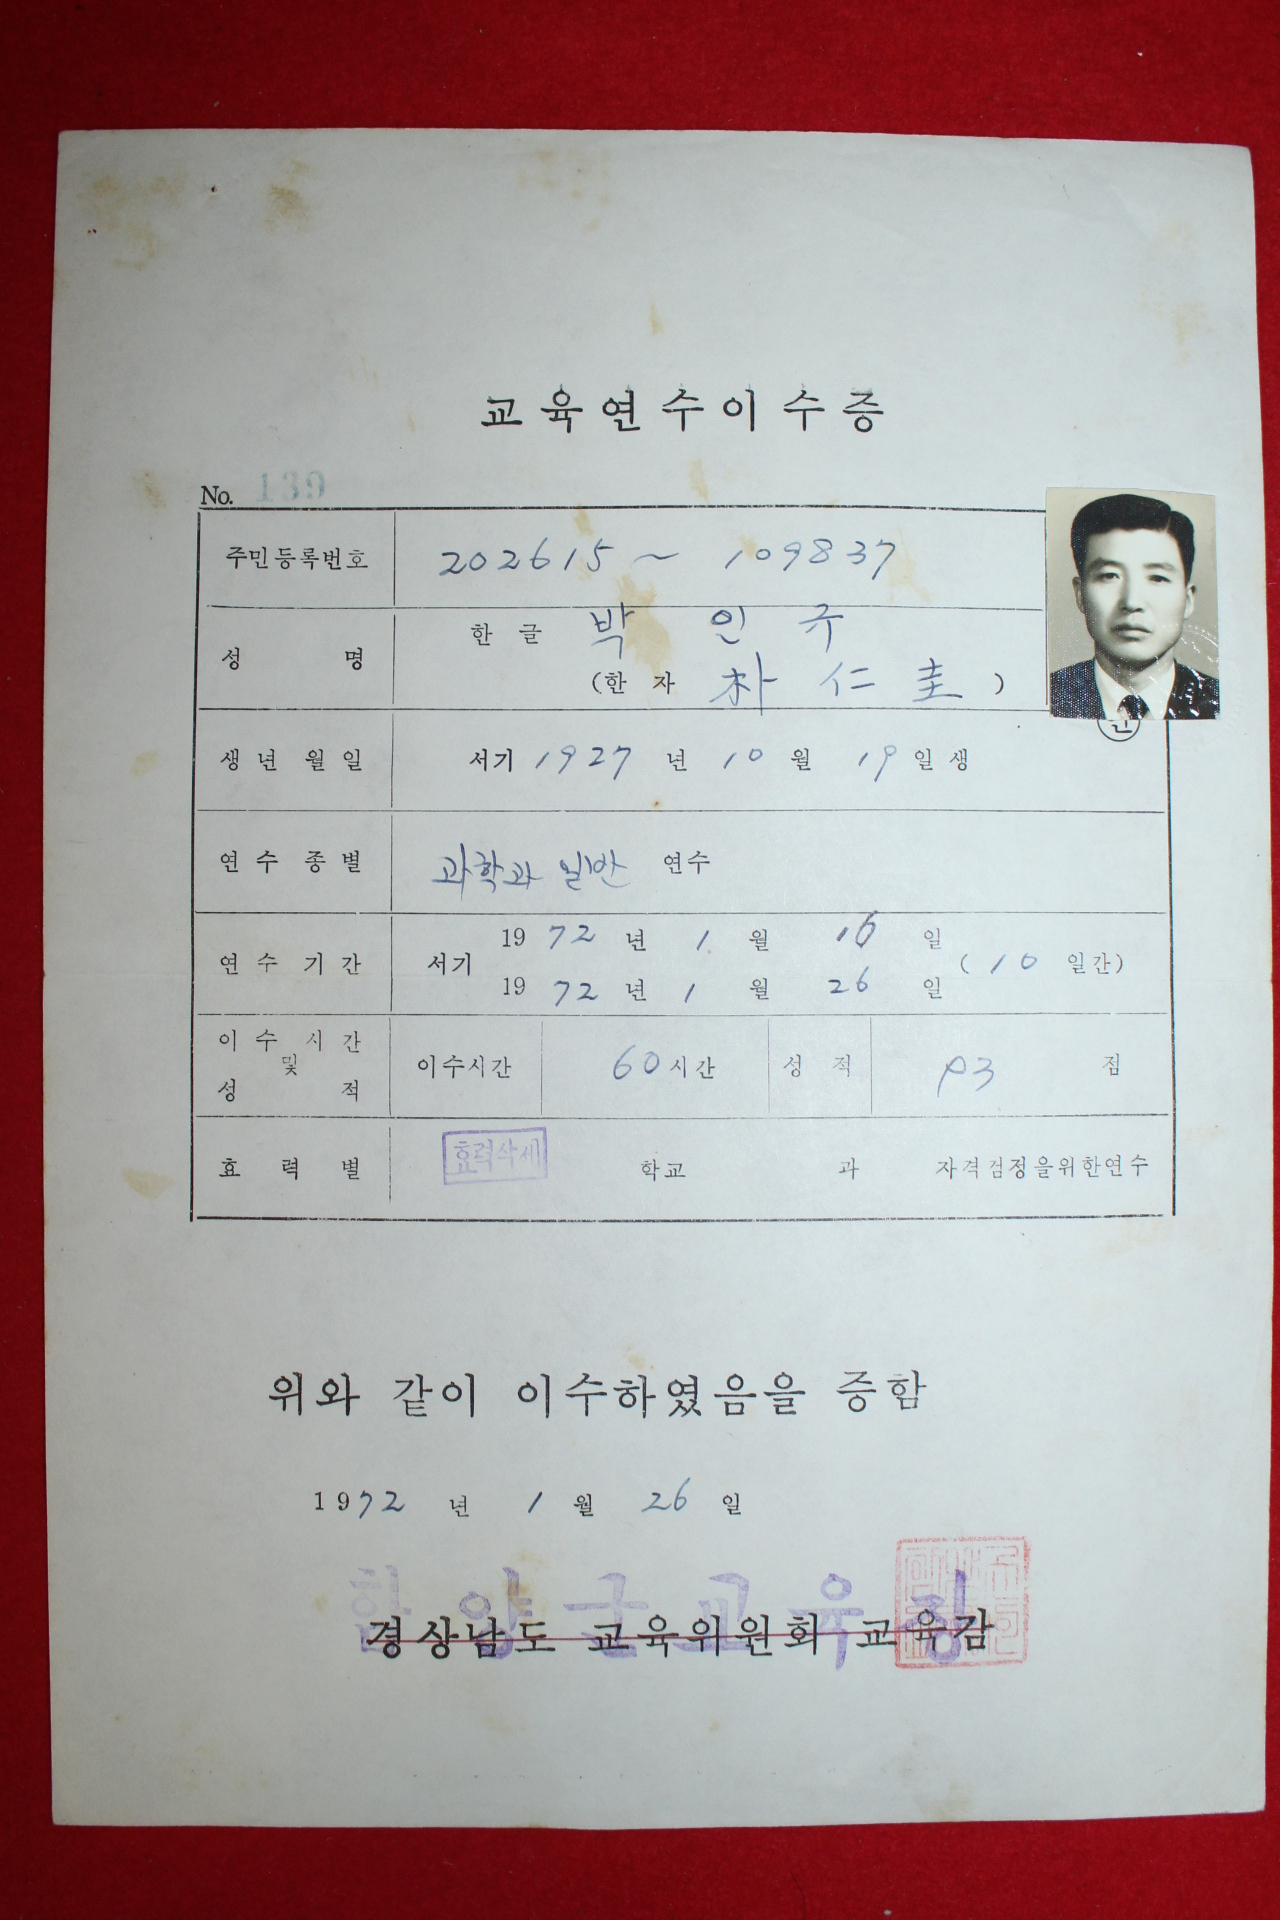 교육연수이수증
No. 139
주민등록번호 202615 ~ 109837
성 명 한글 박 인 규
(한자 朴 仁 圭 )
인
생년월일 서기 1927 년 10 월 19 일생
연수종별 과학과 일반 연수
연수기간 서기 1972 년 1 월 16 일
1972 년 1 월 26 일 (10 일간)
이수시간 및 성적 이수시간 60시간 성적 93 점
효력별 효력삭제 학교 과 자격검정을위한연수
위와 같이 이수하였음을 증함
1972 년 1 월 26 일
함양군교육장
경상남도 교육위원회 교육감